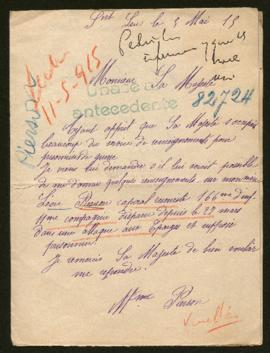 Port Louis le 3 Mai 15
Pedir la
11-5-915
Monsieur Sa Majesté
Una
antecedente
82,724
Ayant appris que Sa Majesté s'occupe
beaucoup du service de renseignements pour
prisonniers de guerre
Je vous demande s'il lui serait possible
de me donner quelques renseignements sur mon
Léon Pierson caporal au 166me d'inf.
compagnie disparu depuis le 22 mars
dans une attaque aux Eparges et supposé
prisonnier.
Je remercie Sa Majesté de bien vouloir
me répondre.
Mme Pierson